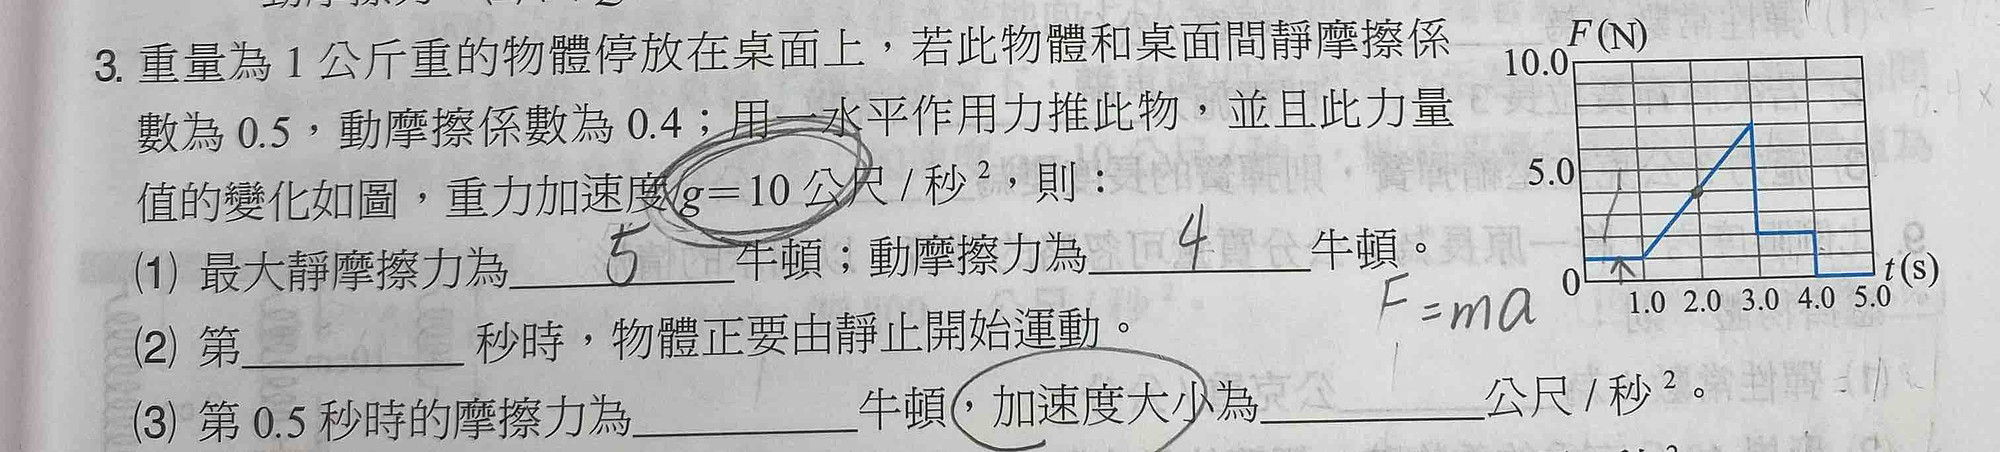 3. 重量為 1 公斤重的物體停放在桌面上，若此物體和桌面間靜摩擦係
數為 0.5，動摩擦係數為 0.4；用一水平作用力推此物，並且此力量
值的變化如圖，重力加速度 g=10 公尺 / 秒²，則：
(1) 最大靜摩擦力為 5 牛頓；動摩擦力為 4 牛頓。
F=ma
(2) 第________秒時，物體正要由靜止開始運動。
(3) 第 0.5 秒時的摩擦力為________牛頓，加速度大小為________公尺 / 秒²。
F (N)
10.0
5.0
0
1.0 2.0 3.0 4.0 5.0
t (s)